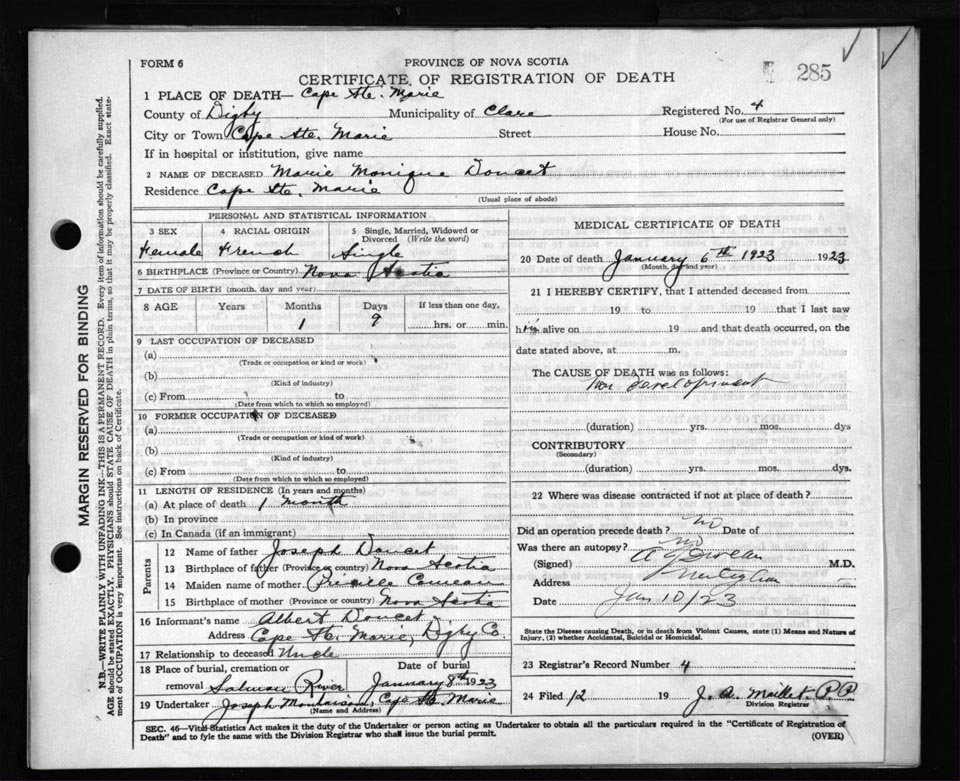 FORM 6
PROVINCE OF NOVA SCOTIA
CERTIFICATE OF REGISTRATION OF DEATH
285
1 PLACE OF DEATH— Cape Ste. Marie
County of Digby Municipality of Clare Registered No. 4
(For use of Registrar General only)
City or Town Cape Ste. Marie Street House No.
If in hospital or institution, give name
2 NAME OF DECEASED Marie Monique Doucet
Residence Cape Ste. Marie
(Usual place of abode)
MARGIN RESERVED FOR BINDING
N.B.—WRITE PLAINLY WITH UNFADING INK—THIS IS A PERMANENT RECORD. Every item of information should be carefully supplied.
AGE should be stated EXACTLY. PHYSICIANS should STATE CAUSE OF DEATH in plain terms, so that it may be properly classified. Exact statement of OCCUPATION is very important. See instructions on back of Certificate.
PERSONAL AND STATISTICAL INFORMATION
3 SEX 4 RACIAL ORIGIN 5 Single, Married, Widowed or
Divorced (Write the word)
Female French Single
6 BIRTHPLACE (Province or Country) Nova Scotia
7 DATE OF BIRTH (month, day and year)
8 AGE Years Months Days If less than one day,
1 9 hrs. or min.
9 LAST OCCUPATION OF DECEASED
(a)
(Trade or occupation or kind of work)
(b)
(Kind of industry)
(c) From to
(Date from which to which so employed)
10 FORMER OCCUPATION OF DECEASED
(a)
(Trade or occupation or kind of work)
(b)
(Kind of industry)
(c) From to
(Date from which to which so employed)
11 LENGTH OF RESIDENCE (In years and months)
(a) At place of death 1 month
(b) In province
(c) In Canada (if an immigrant)
Parents
12 Name of father Joseph Doucet
13 Birthplace of father (Province or country) Nova Scotia
14 Maiden name of mother Priscille Comeau
15 Birthplace of mother (Province or country) Nova Scotia
16 Informant's name Albert Doucet
Address Cape Ste. Marie, Digby Co.
17 Relationship to deceased Uncle
18 Place of burial, cremation or Date of burial
removal Salmon River January 8th 1923
19 Undertaker Joseph Cape Ste. Marie
(Name and Address)
MEDICAL CERTIFICATE OF DEATH
20 Date of death January 6th 1923 1923
(Month, day and year)
21 I HEREBY CERTIFY, that I attended deceased from
19 to 19 that I last saw
h alive on 19 and that death occurred, on the
date stated above, at m.
The CAUSE OF DEATH was as follows:
Non development
(duration) yrs. mos. dys
CONTRIBUTORY
(Secondary)
(duration) yrs. mos. dys.
22 Where was disease contracted if not at place of death?
Did an operation precede death? no Date of
Was there an autopsy? no
(Signed) M.D.
Address
Date Jan 10/23
State the Disease causing Death, or in death from Violent Causes, state (1) Means and Nature of
Injury, (2) whether Accidental, Suicidal or Homicidal.
23 Registrar's Record Number 4
24 Filed 12 19 J. A. Maillet. P.P.
Division Registrar
SEC. 46—Vital Statistics Act makes it the duty of the Undertaker or person acting as Undertaker to obtain all the particulars required in the "Certificate of Registration of
Death" and to fyle the same with the Division Registrar who shall issue the burial permit.
(OVER)